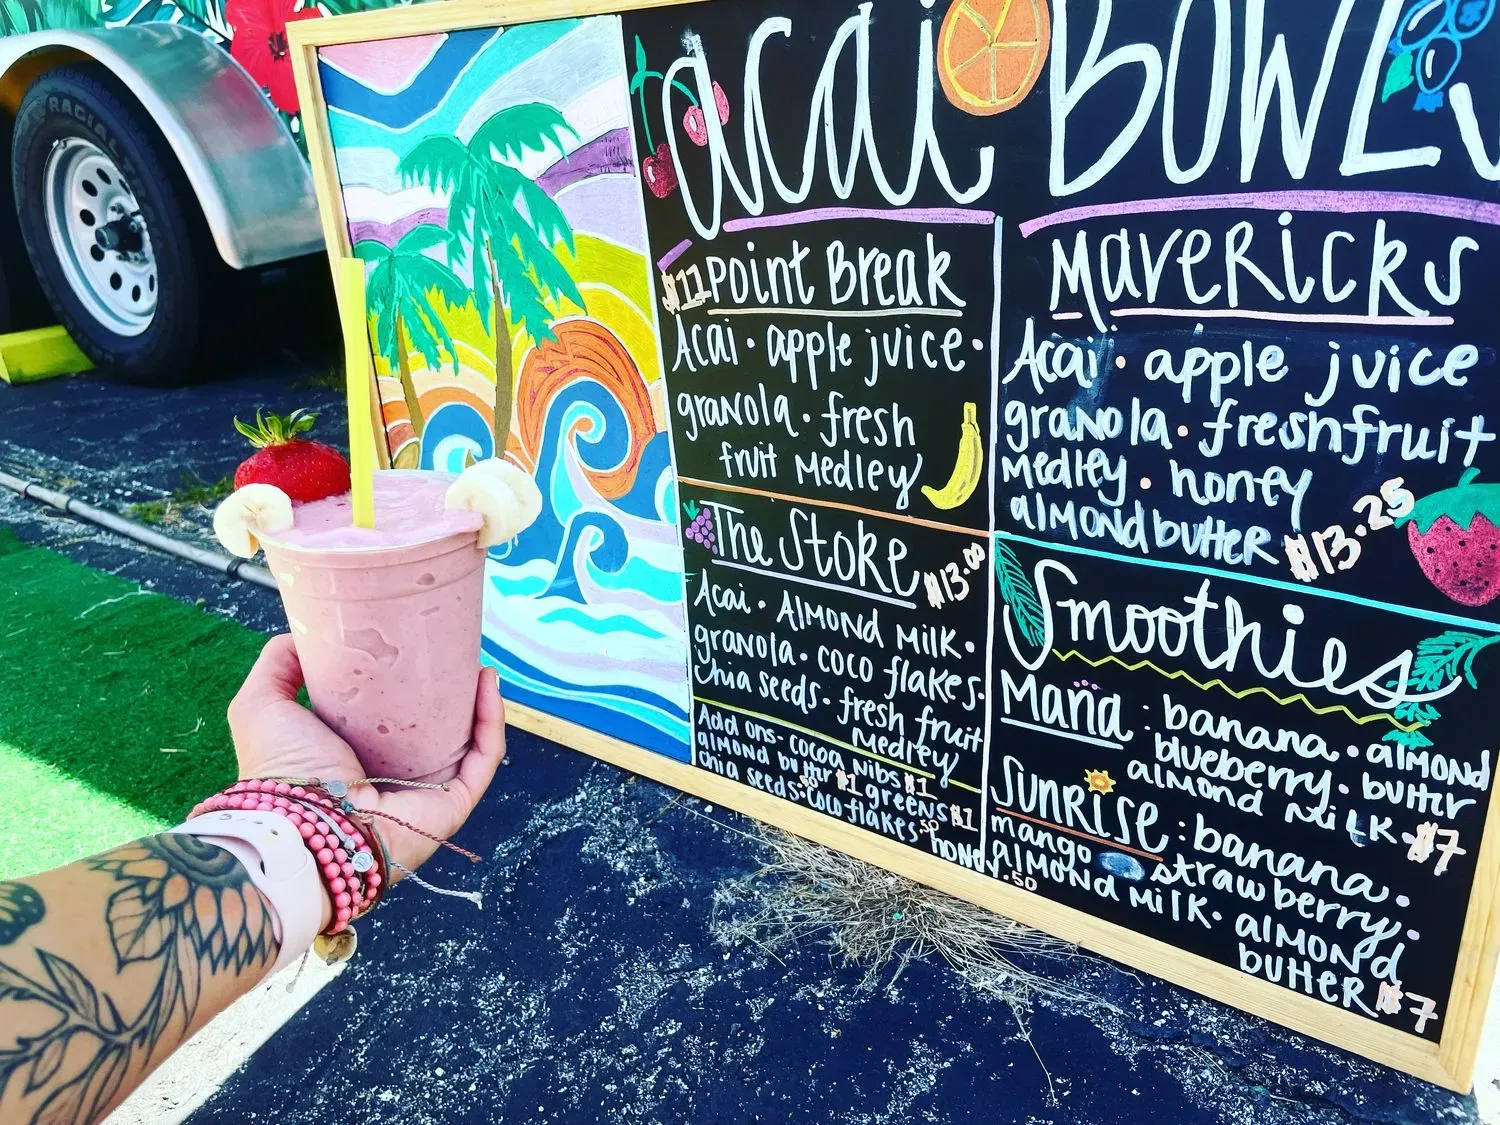 RADIAL
Acai Bowls
$11 Point Break
Acai · apple juice ·
granola · fresh
fruit Medley
The Stoke $13.00
Acai · Almond Milk ·
granola · coco flakes ·
Chia seeds · fresh fruit
Medley
Add ons - cocoa nibs $1
almond butter $1 greens $1
chia seeds .50 coco flakes .50
honey .50
Mavericks
Acai · apple juice
granola · fresh fruit
Medley · honey
almond butter $13.25
Smoothies
Mana : banana · almond
blueberry · butter
almond milk · $7
Sunrise : banana ·
mango strawberry ·
almond milk · almond
butter $7